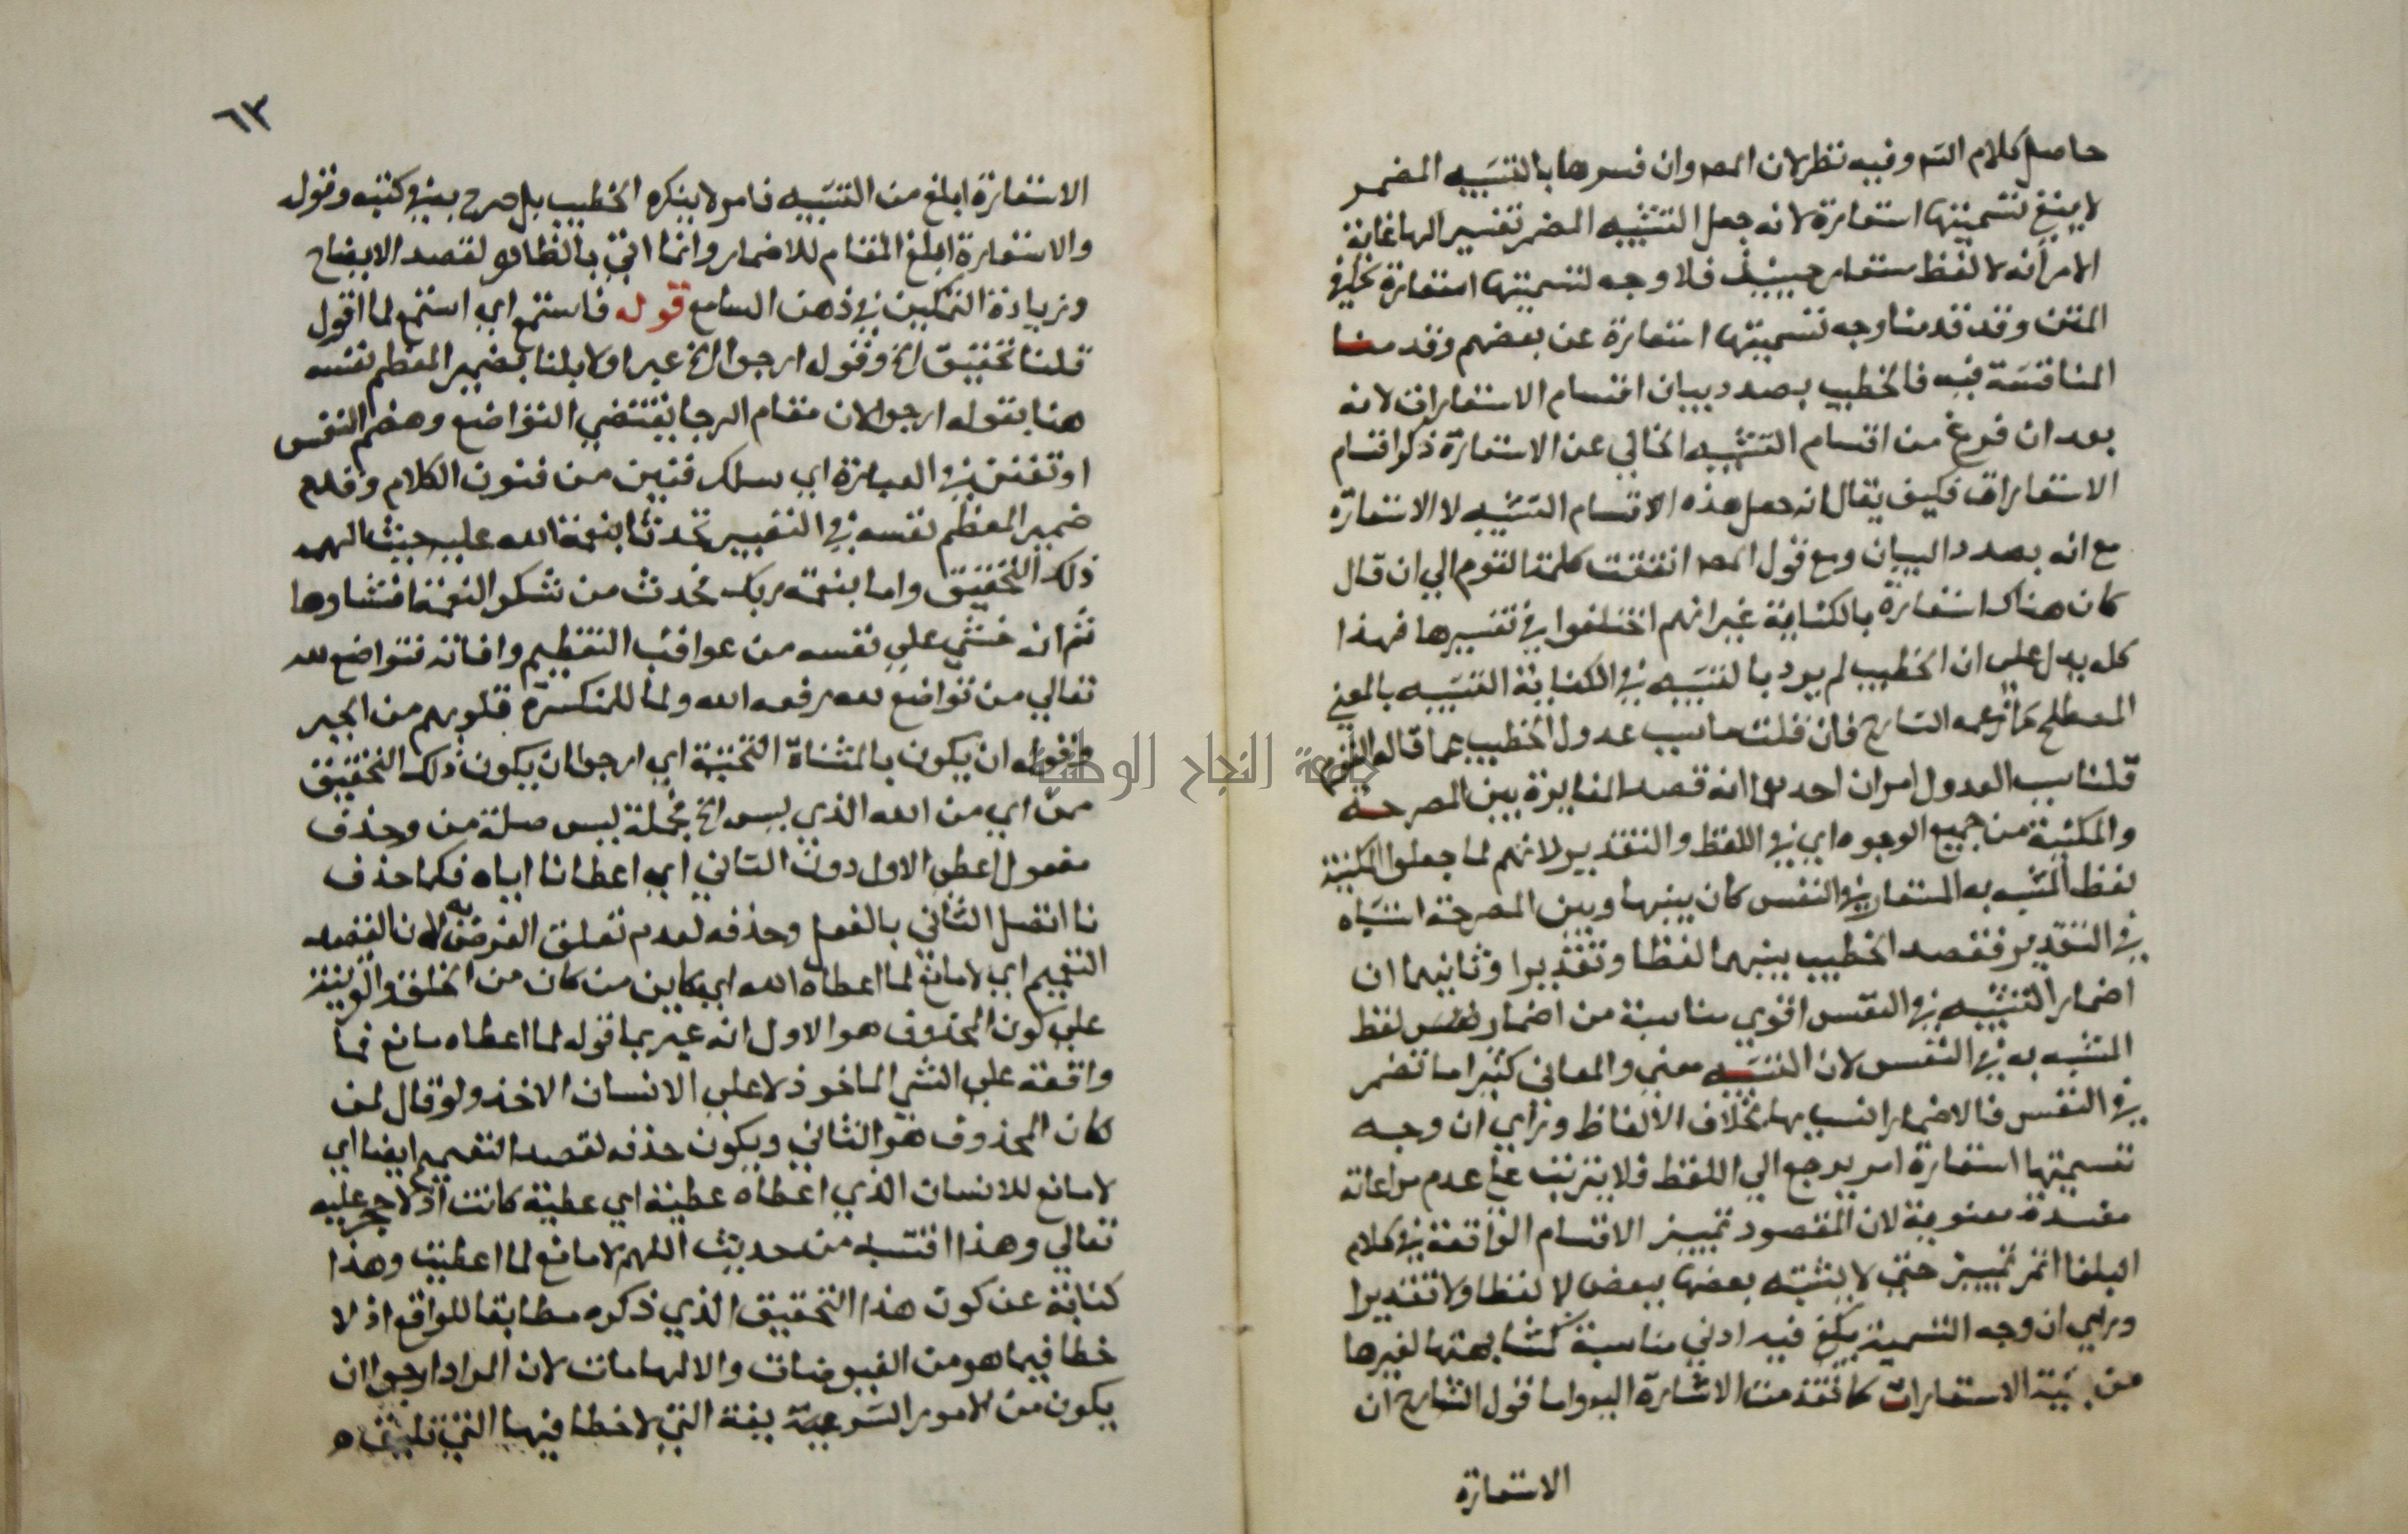 حاصل كلام الشم وفيه نظر لان المص وان فسرها بالتشبيه المضمر
لا ينبغي تسميتها استعارة لانه جعل التشبيه المضمر تفسيرا لها غاية
الامر انه لا لفظ مستعار حينئذ فلا وجه لتسميتها استعارة
المتن وقد قدمنا وجه تسميتها استعارة عن بعضهم وقدمنا
المناقشة فيه فالخطيب بصدد بيان اقسام الاستعارات لانه
بعد ان فرغ من اقسام التشبيه الخالي عن الاستعارة ذكر اقسام
الاستعارات فكيف يقال انه جعل هذه الاقسام التشبيه لا الاستعارة
مع انه بصدد البيان ومع قول المص اتفقت كلمة القوم الي ان قال
كان هناك استعارة بالكناية غير انهم اختلفوا في تفسيرها فهذا
كله يدل علي ان الخطيب لم يرد بالتشبيه في الكناية التشبيه بالمعني
المصطلح كما زعمه الشارح فان قلت ما سبب عدول الخطيب عما قاله القوم
قلنا سبب العدول امران احدهما انه قصد المغايرة بين المصرحة
والمكنية من جميع الوجوه اي في اللفظ والتقدير لانهم لما جعلوا المكنية
لفظ المشبه به المستعار في النفس كان بينها وبين المصرحة اشتباه
في التقدير فقصد الخطيب بينهما لفظا وتقديرا وثانيهما ان
اضمار التشبيه في النفس اقوي مناسبة من اضمار نفس لفظ
المشبه به في النفس لان التشبيه معني والمعاني كثيرا ما تضمر
في النفس فالاضمار انسب بها بخلاف الالفاظ وراي ان وجه
تسميتها استعارة امر يرجع الي اللفظ فلا يترتب علي عدم مراعاته
مفسدة معنوية لان المقصود تمييز الاقسام الواقعة في كلام
البلغا اتم تمييز حتي لا يشتبه بعضها ببعض لا لفظا ولا تقديرا
وراي ان وجه التسمية يكفي فيه ادني مناسبة كمشابهتها لغيرها
من بقية الاستعارات كما تقدمت الاشارة اليه واما قول الشارح ان
الاستعارة
٦٣
الاستعارة ابلغ من التشبيه فامر لا ينكره الخطيب بل صرح به في كتبه وقوله
والاستعارة ابلغ المقام للاضمار وانما اتي بالظاهر لقصد الايضاح
وزيادة التمكين في ذهن السامع قوله فاستمع اي استمع لما اقول
قلنا تحقيق الخ وقوله ارجوا الخ عبر اولا بلنا بضمير المعظم نفسه
هنا بقوله ارجو لان مقام الرجا يقتضي التواضع وهضم النفس
او تفنن في العبارة اي سلك فنين من فنون الكلام وقدم
ضمير المعظم نفسه في التعبير تحدثا بنعمة الله عليه حيث الهمه
ذلك التحقيق واما بنعمة ربك فحدث من شكر النعمة افشاوها
ثم انه خشي علي نفسه من عواقب التعظيم وافاته فتواضع لله
تعالي من تواضع لله رفعه الله ولما للمنكسرة قلوبهم من الجبر
وقوله ان يكون بالمثناة التحتية اي ارجوا ان يكون ذلك التحقيق
ممن اي من الله الذي ليس الخ فجملة ليس صلة من وحذف
مفعول اعطي الاول دون الثاني اي اعطانا اياه فكما حذف
نا اتصل الثاني بالفعل وحذفه لعدم تعلق الغرض به لان القصد
التعميم اي لا مانع لما اعطاه الله اي كاين من كان من الخلق والقرينة
علي كون المحذوف هو الاول انه عبر بما قوله لما اعطاه مانع فما
واقعة علي الشي الماخوذ لا علي الانسان الاخذ ولو قال لمن
كان المحذوف هو الثاني ويكون حذفه لقصد التعميم ايضا اي
لا مانع للانسان الذي اعطاه عطية اي عطية كانت اذ لا حجر عليه
تعالي وهذا اقتسبه من حديث اللهم لا مانع لما اعطيت وهذا
كناية عن كون هذا التحقيق الذي ذكره مطابقا للواقع اذ لا
خطا فيما هو من الفيوضات والالهامات لان المراد ارجوا ان
يكون من الامور الشرعية بقة التي لا خطا فيها التي
جامعة النجاح الوطنية